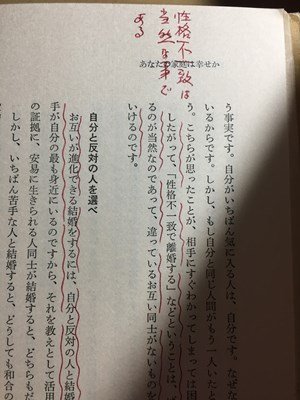 性格不一致は
当然な事で
ある
あなたの家庭は幸せか
う事実です。自分がいちばん気に入る人は、自分です。なぜな
いるからです。しかし、もし自分と同じ人間がもう一人いたと
う。こちらが思ったことが、相手にすぐわかってしまっては困
したがって、「性格不一致で離婚する」などということは、
るのが当然なのであって、違っているお互い同士がないものを
いけるのです。
自分と反対の人を選べ
お互いが進化できる結婚をするには、自分と反対の人と結婚
手が自分の最も身近にいるのですから、それを教えとして活用
の証拠に、安易に生きられる人同士が結婚すると、どちらもだ
しかし、いちばん苦手な人と結婚すると、どうしても和合の